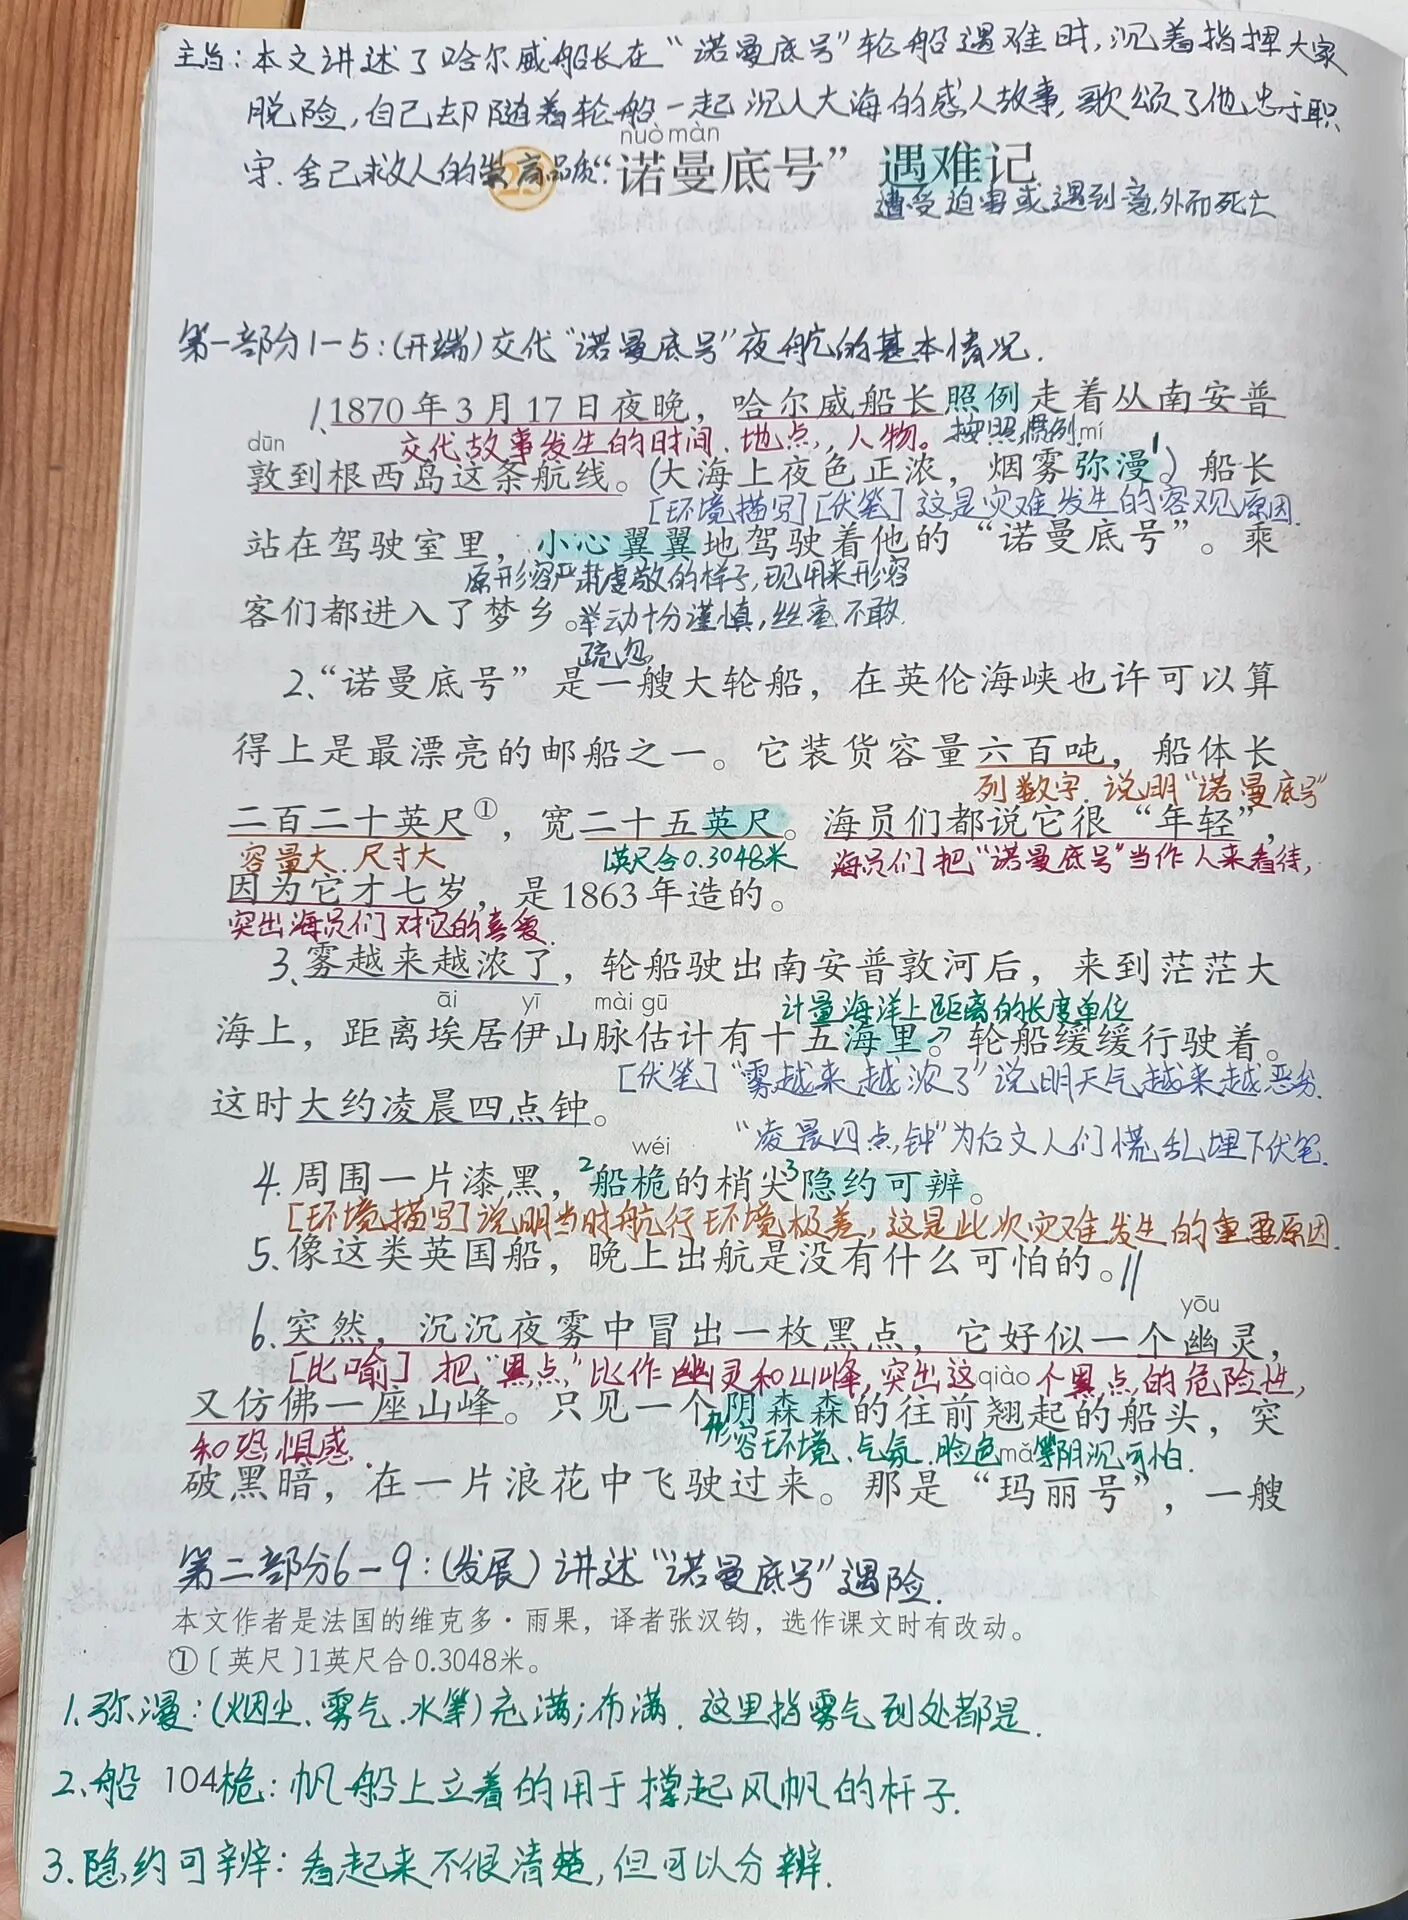 主旨:本文讲述了哈尔威船长在“诺曼底号”轮船遇难时,沉着指挥大家
脱险,自己却随着轮船一起沉入大海的感人故事,歌颂了他忠于职
守.舍己救人的崇高品质.
nuò màn
23 “诺曼底号”遇难记
遭受迫害或遇到意外而死亡
第一部分1-5:(开端)交代“诺曼底号”夜航的基本情况.
1.1870年3月17日夜晚,哈尔威船长照例走着从南安普
dūn 交代故事发生的时间.地点,人物。 按照惯例. mí 1
敦到根西岛这条航线。(大海上夜色正浓,烟雾弥漫。)船长
[环境描写][伏笔]这是灾难发生的客观原因.
站在驾驶室里,小心翼翼地驾驶着他的“诺曼底号”。乘
原形容严肃虔敬的样子,现用来形容
客们都进入了梦乡。举动十分谨慎,丝毫不敢
疏忽
2.“诺曼底号”是一艘大轮船,在英伦海峡也许可以算
得上是最漂亮的邮船之一。它装货容量六百吨,船体长
列数字.说明“诺曼底号”
二百二十英尺①,宽二十五英尺。海员们都说它很“年轻”,
容量大.尺寸大 1英尺合0.3048米 海员们把“诺曼底号”当作人来看待,
因为它才七岁,是1863年造的。
突出海员们对它的喜爱.
3.雾越来越浓了,轮船驶出南安普敦河后,来到茫茫大
āi yī mài gū 计量海洋上距离的长度单位
海上,距离埃居伊山脉估计有十五海里。轮船缓缓行驶着。
[伏笔]“雾越来越浓了”说明天气越来越恶劣.
这时大约凌晨四点钟。
“凌晨四点钟”为后文人们慌乱埋下伏笔.
wéi
4.周围一片漆黑,2船桅的梢尖3隐约可辨。
[环境描写]说明当时航行环境极差,这是此次灾难发生的重要原因.
5.像这类英国船,晚上出航是没有什么可怕的。//
yōu
6.突然,沉沉夜雾中冒出一枚黑点,它好似一个幽灵,
[比喻]把“黑点”比作幽灵和山峰,突出这个黑点的危险性,
qiào
又仿佛一座山峰。只见一个阴森森的往前翘起的船头,突
和恐惧感. 形容环境.气氛.脸色等阴沉可怕.
mǎ
破黑暗,在一片浪花中飞驶过来。那是“玛丽号”,一艘
第二部分6-9:(发展)讲述“诺曼底号”遇险.
本文作者是法国的维克多·雨果,译者张汉钧,选作课文时有改动。
①〔英尺〕1英尺合0.3048米。
1.弥漫:(烟尘、雾气.水等)充满;布满.这里指雾气到处都是.
2.船桅:帆船上立着的用于撑起风帆的杆子.
104
3.隐约可辨:看起来不很清楚,但可以分辨.